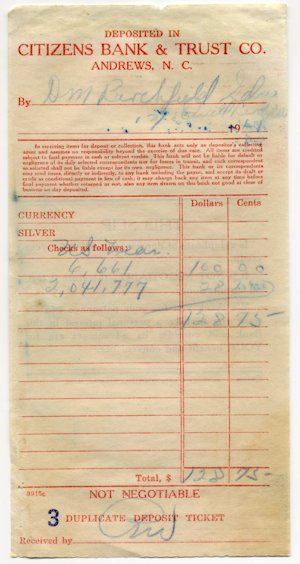 DEPOSITED IN
CITIZENS BANK & TRUST CO.
ANDREWS, N. C.
By D M Birchfield
19
In receiving items for deposit or collection, this bank acts only as depositor's collecting
agent and assumes no responsibility beyond the exercise of due care. All items are credited
subject to final payment in cash or solvent credits. This Bank will not be liable for default or
negligence of its duly selected correspondents nor for losses in transit, and each correspondent
so selected shall not be liable except for its own negligence. This bank or its correspondents
may send items, directly or indirectly, to any bank including the payor, and accept its draft or
credit as conditional payment in lieu of cash; it may charge back any item at any time before
final payment whether returned or not, also any item drawn on this bank not good at close of
business on day deposited.
Dollars Cents
CURRENCY
SILVER
Checks as follows:
6,661 100 00
2,041,777 28
128 75
Total, $ 128 75
8915c NOT NEGOTIABLE
3 DUPLICATE DEPOSIT TICKET
Received by